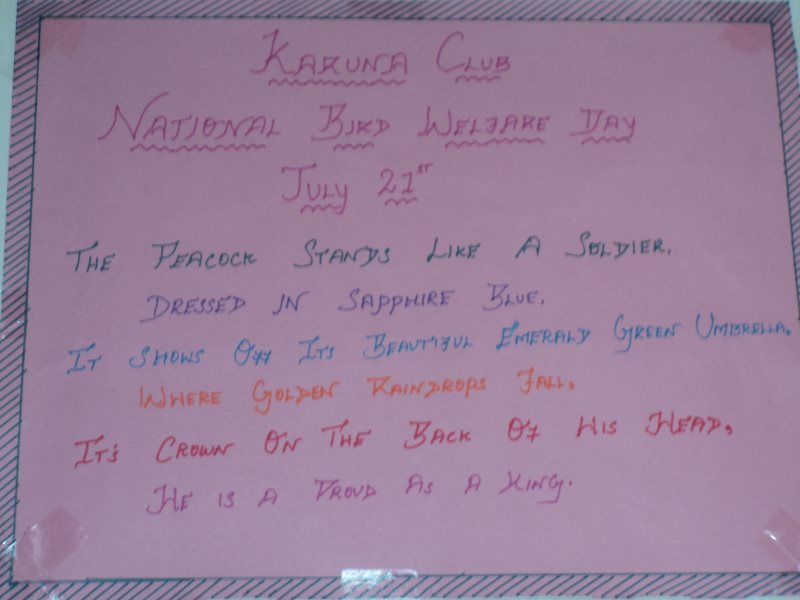 KARUNA CLUB
NATIONAL BIRD WELFARE DAY
JULY 21ST
THE PEACOCK STANDS LIKE A SOLDIER.
DRESSED IN SAPPHIRE BLUE.
IT SHOWS OFF ITS BEAUTIFUL EMERALD GREEN UMBRELLA.
WHERE GOLDEN RAINDROPS FALL,
IT'S CROWN ON THE BACK OF HIS HEAD,
HE IS A PROUD AS A KING.